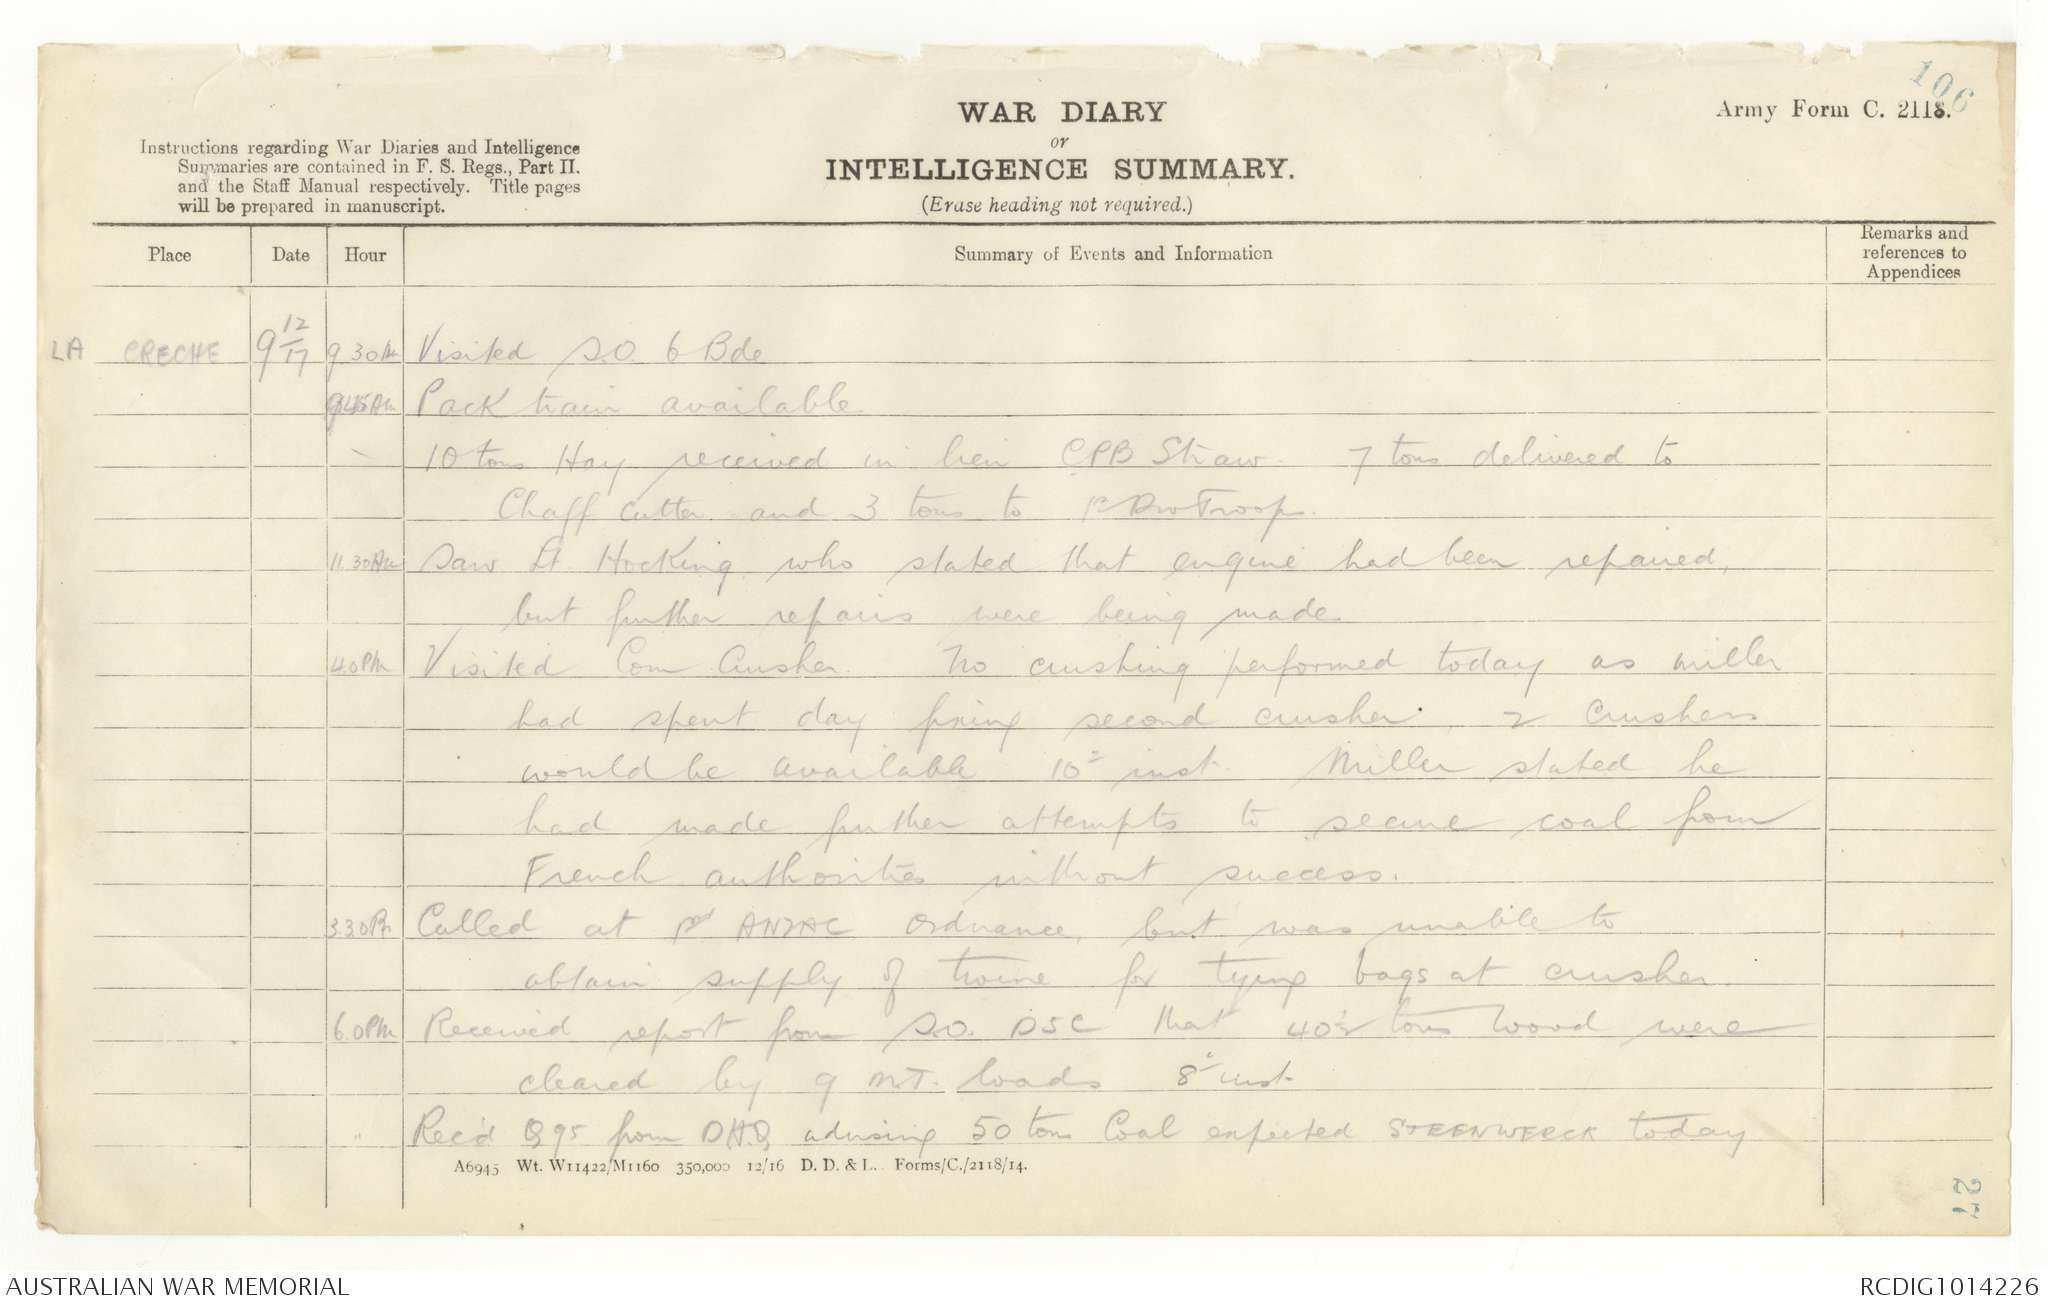 106
Army Form C. 2118.
WAR DIARY
or
INTELLIGENCE SUMMARY.
(Erase heading not required.)
Instructions regarding War Diaries and Intelligence
Summaries are contained in F. S. Regs., Part II.
and the Staff Manual respectively. Title pages
will be prepared in manuscript.
Place Date Hour Summary of Events and Information Remarks and references to Appendices
LA CRECHE 9 12/17 9 30 AM Visited S.O. 6 Bde
9.45 AM Pack train available.
10 tons Hay received in lieu CPB Straw. 7 tons delivered to
Chaff cutter and 3 tons to Div Troops.
11.30 AM Saw Lt Hocking who stated that engine had been repaired,
but further repairs were being made.
4.0 PM Visited Corn Crusher. No crushing performed today as miller
had spent day fixing second crusher. 2 crushers
would be available 10th inst. Miller stated he
had made further attempts to secure coal from
French authorities without success.
3.30 PM Called at 1st ANZAC Ordnance, but was unable to
obtain supply of twine for tying bags at crusher.
6.0 PM Received report from S.O. DSC that 40½ tons wood were
cleared by 9 M.T. loads 8th inst
" Rec'd Q95 from DHQ advising 50 tons Coal expected STEENWERCK today
A6945 Wt. W11422/M1160 350,000 12/16 D. D. & L. Forms/C./2118/14.
27
AUSTRALIAN WAR MEMORIAL
RCDIG1014226